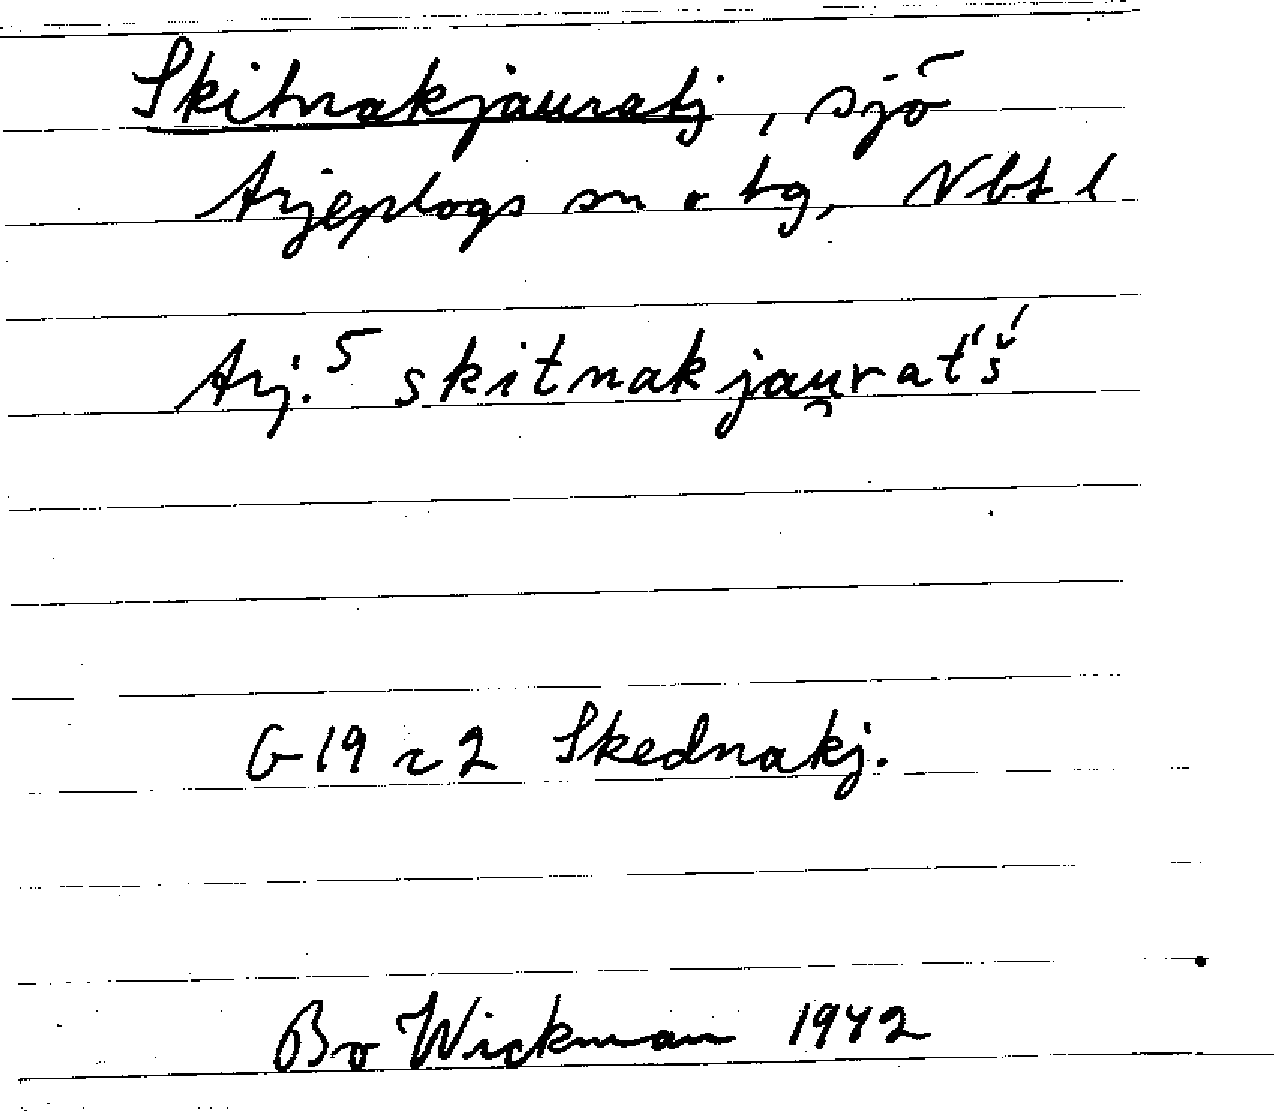 Skitnakjauratj, sjö
Arjeplogs sn o tg, Nbt l
Arj.⁵ skitnakjau̯rat́š́
G 19 r 2 Skednakj.
Bo Wickman 1942